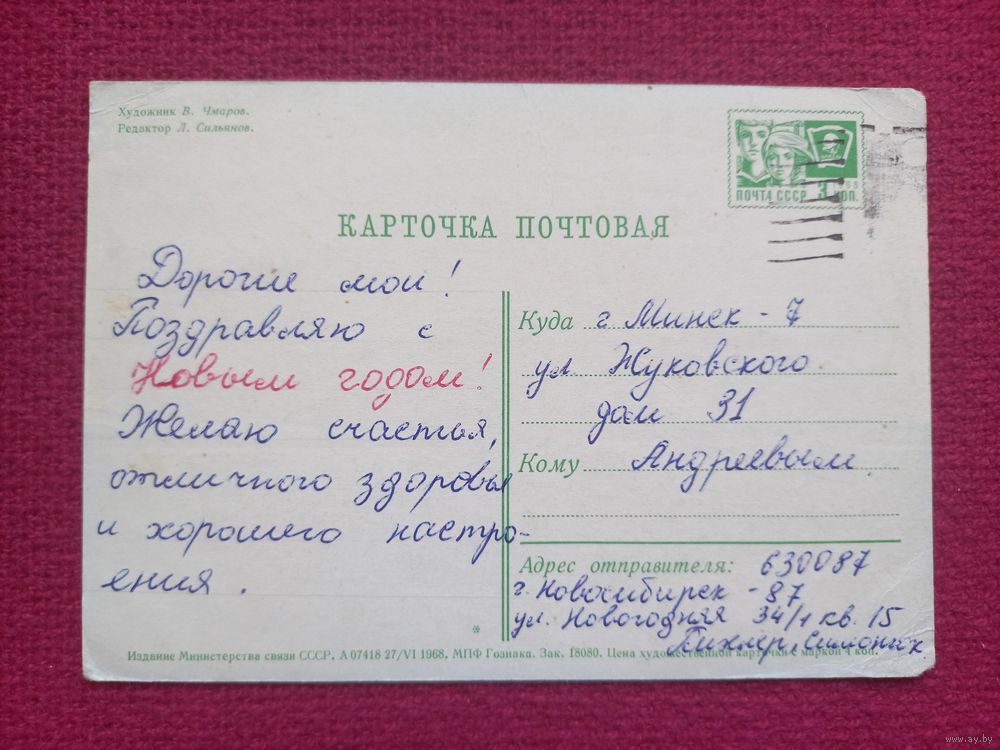 Художник В. Чмаров.
Редактор Л. Сильянов.
ПОЧТА СССР 3 КОП.
КАРТОЧКА ПОЧТОВАЯ
Дорогие мои!
Поздравляю с
Новым годом!
Желаю счастья,
отличного здоровья
и хорошего настро-
ения.
Куда г. Минск - 7
ул. Жуковского
дом 31
Кому Андреевым
Адрес отправителя: 630087
г. Новосибирск - 87
ул. Новогодняя 34/1 кв. 15
*
Издание Министерства связи СССР. А 07418 27/VI 1968. МПФ Гознака. Зак. 18080. Цена художественной карточки с маркой 4 коп.
www.ay.by